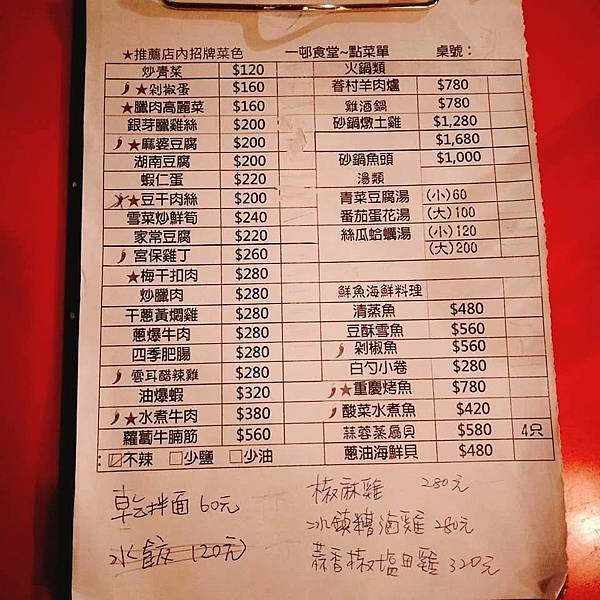 ★推薦店內招牌菜色 一頓食堂~點菜單 桌號：
炒青菜 $120
★剁椒蛋 $160
★臘肉高麗菜 $160
銀芽臘雞絲 $200
★麻婆豆腐 $200
湖南豆腐 $200
蝦仁蛋 $220
★豆干肉絲 $200
雪菜炒鮮筍 $240
家常豆腐 $220
宮保雞丁 $260
★梅干扣肉 $280
炒臘肉 $280
干蔥黃燜雞 $280
蔥爆牛肉 $280
四季肥腸 $280
雲耳醋辣雞 $280
油爆蝦 $320
★水煮牛肉 $380
蘿蔔牛腩筋 $560
：☑不辣 □少鹽 □少油
火鍋類
眷村羊肉爐 $780
雞酒鍋 $780
砂鍋燉土雞 $1,280
$1,680
砂鍋魚頭 $1,000
湯類
青菜豆腐湯 (小)60
番茄蛋花湯 (大)100
絲瓜蛤蠣湯 (小)120
(大)200
鮮魚海鮮料理
清蒸魚 $480
豆酥雪魚 $560
剁椒魚 $560
白勺小卷 $280
★重慶烤魚 $780
酸菜水煮魚 $420
蒜蓉蒸扇貝 $580 4只
蔥油海鮮貝 $480
乾拌面 60元
水餃 (120元)
椒麻雞 280元
冰鎮糟滷雞 280元
蒜香椒塩田雞 320元